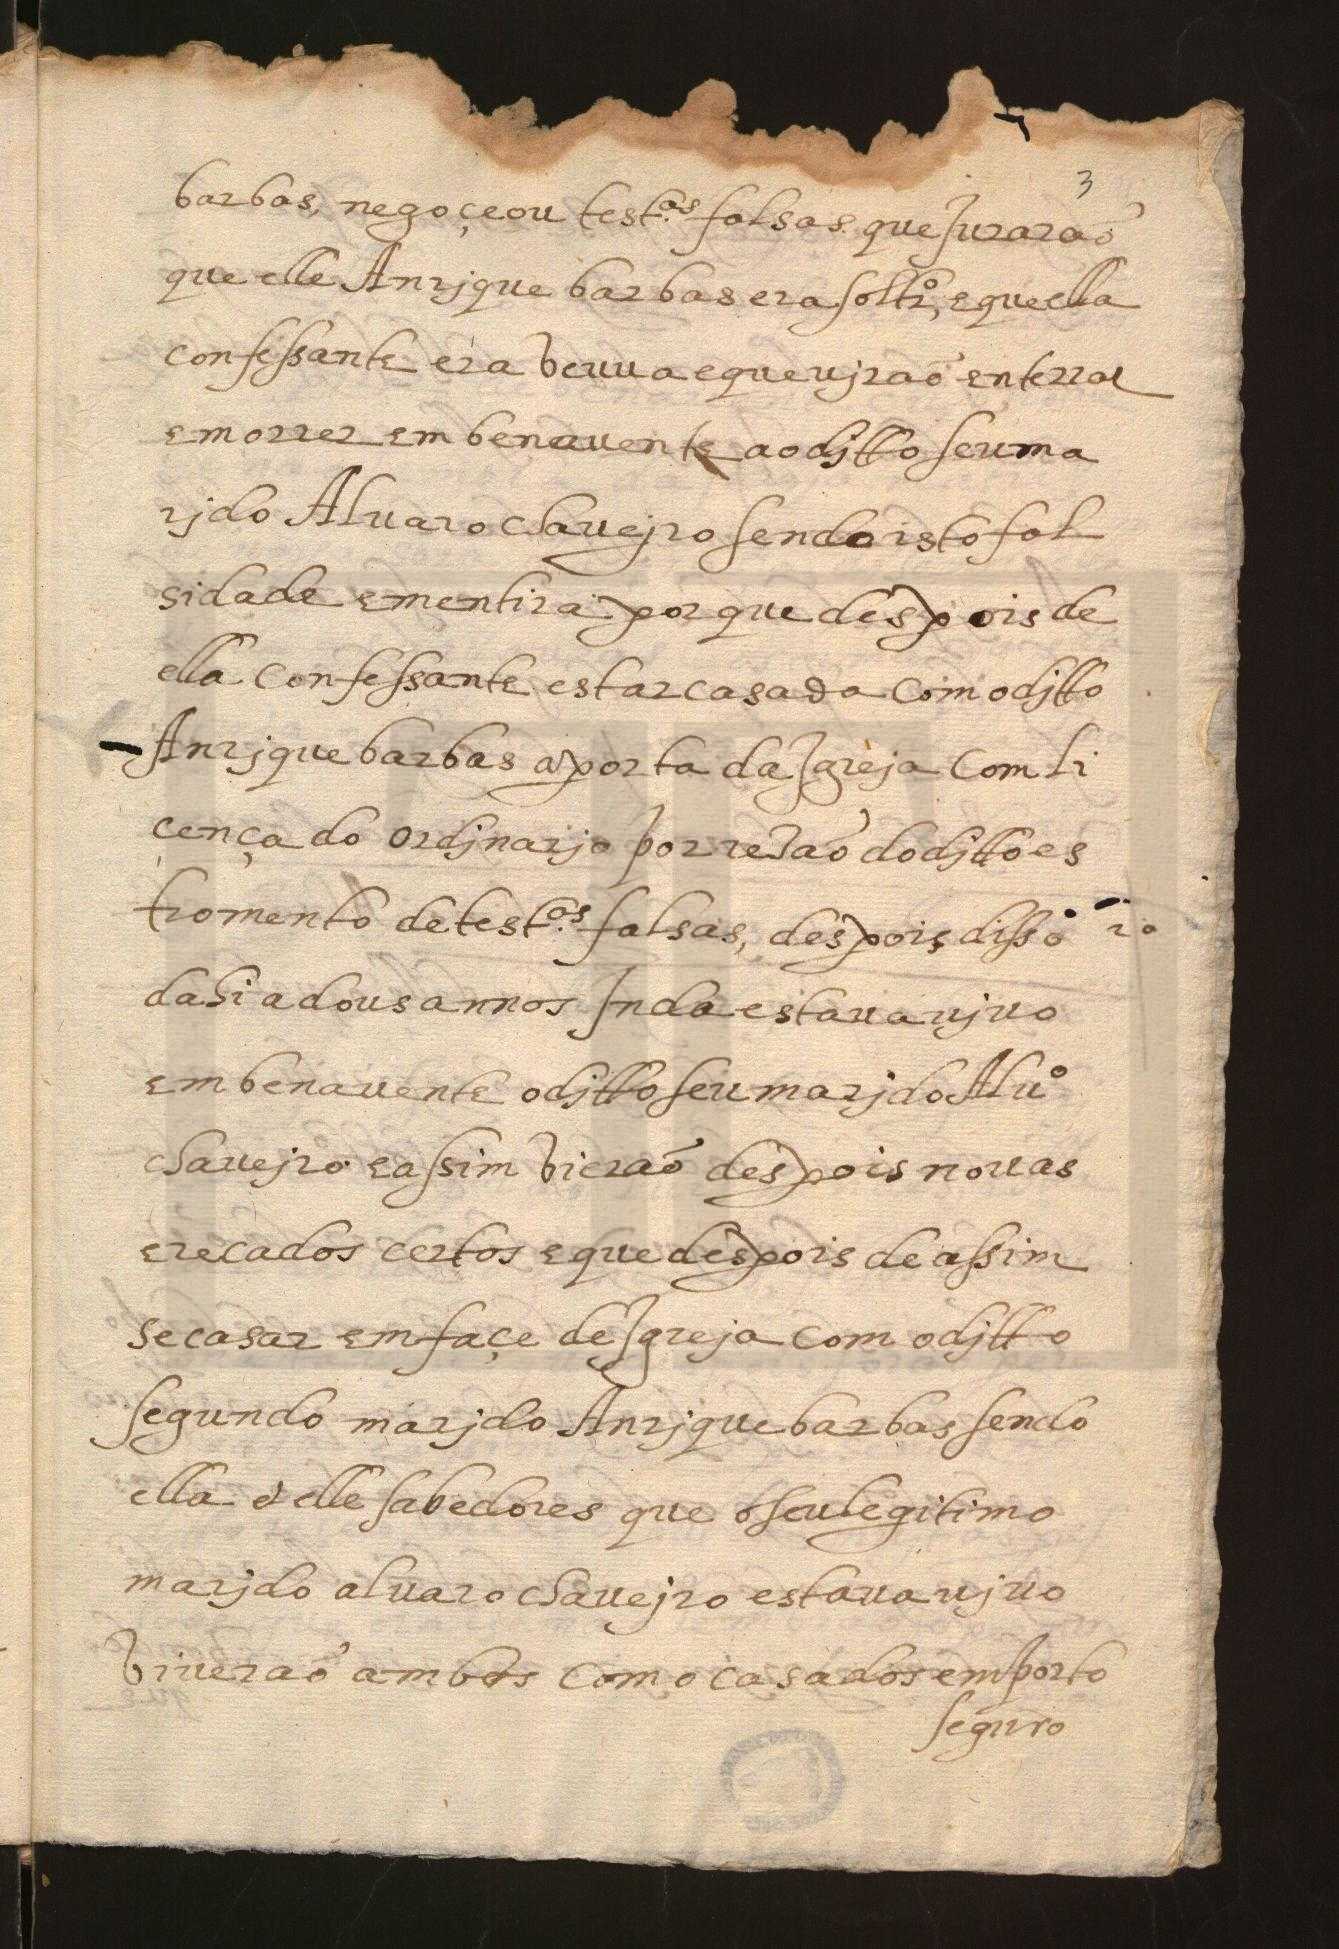 3
barbas, negoçeou test.as falsas que Jurarão
que elle Anrjque barbas era soltro, e que ella
confessante era veuua e que vjrão enterrar
e morrer em benauente ao djtto seu ma
rjdo Aluaro chauejro sendo isto fal
sidade e mentira, porque despois de
ella confessante estar casada com o djtto
Anrjque barbas a porta da Jgreja com li
çença do ordjnarjo por rezão do djtto es
tromento de test.os falsas, despois disso
dahi a dous annos Jnda estaua vjuo
em benauente o djtto seu marjdo Aluo
chauejro e assim vierão despois nouas
e recados certos e que despois de assim
se casar em façe de Jgreja com o djtto
segundo marjdo Anrjque barbas sendo
ella & elle sabedores que o seu legitimo
marjdo aluaro chauejro estaua vjuo
viuerão ambos como casados em porto
seguro